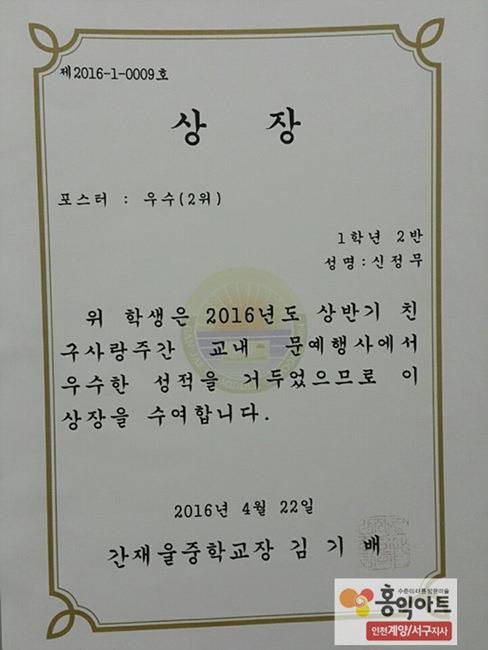 제2016-1-0009호
상 장
포스터 : 우수(2위)
1학년 2반
성명:신정무
위 학생은 2016년도 상반기 친
구사랑주간 교내 문예행사에서
우수한 성적을 거두었으므로 이
상장을 수여합니다.
2016년 4월 22일
간재울중학교장 김 기 배
수준이 다른 방문미술
홍익아트
인천계양/서구지사